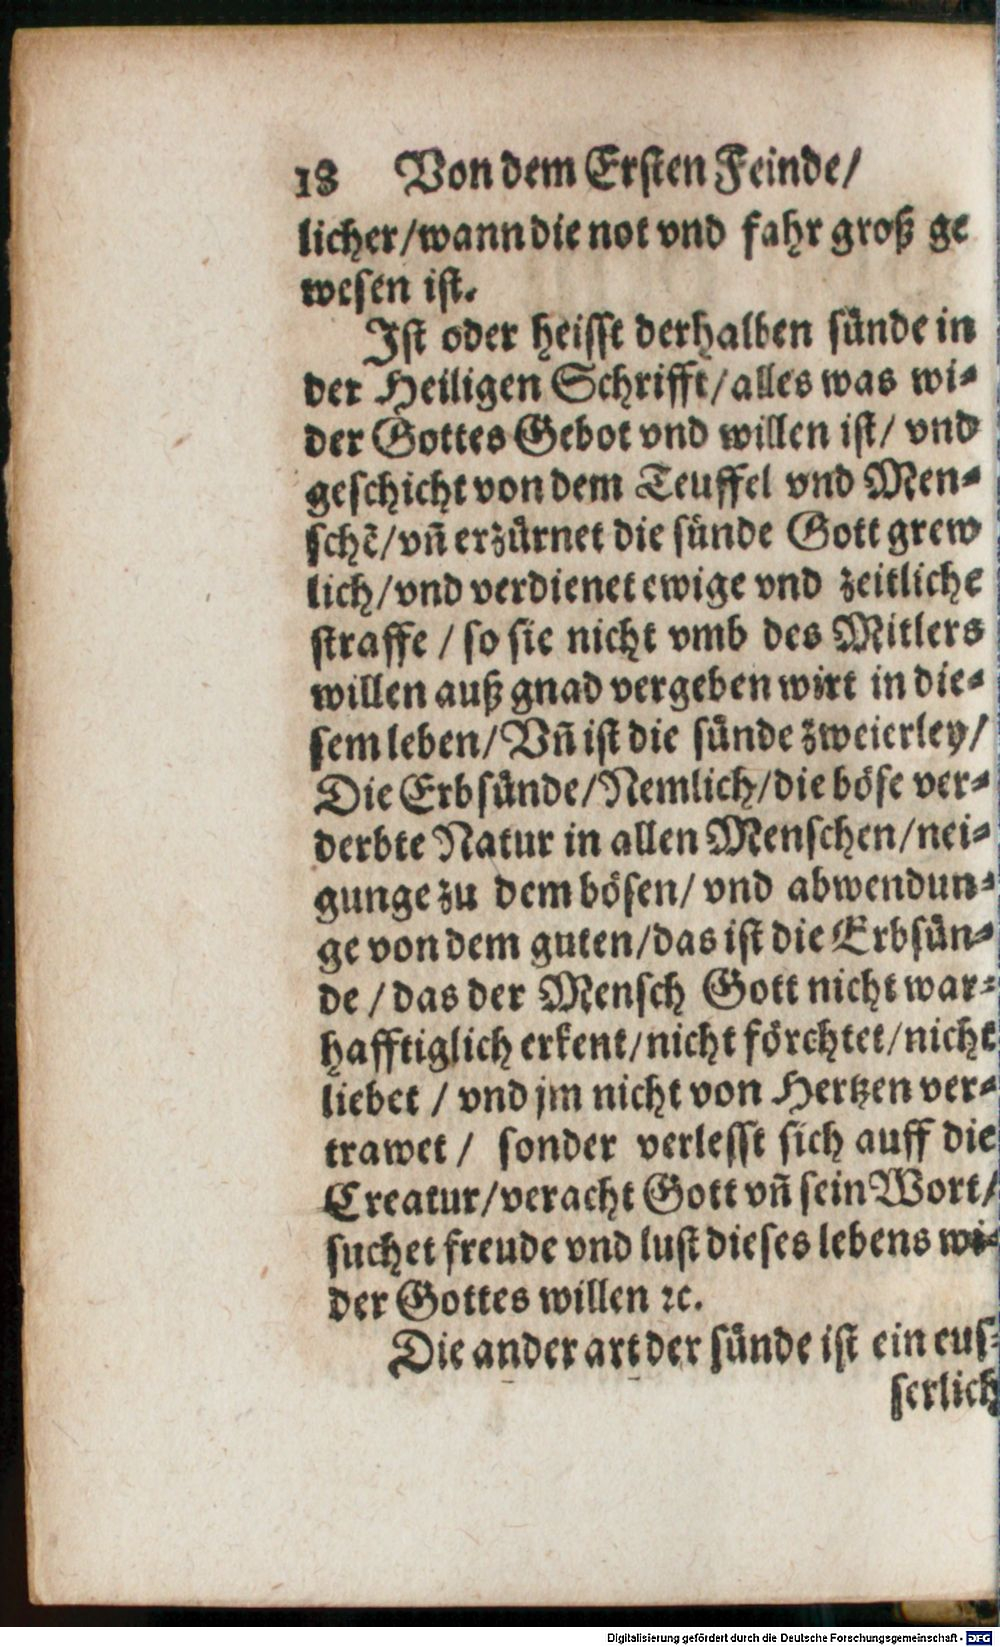 18 Von dem Ersten Feinde/
licher/wann die not vnd fahr groß ge
wesen ist.
Ist oder heisst derhalben sünde in
der Heiligen Schrifft/alles was wi-
der Gottes Gebot vnd willen ist/ vnd
geschicht von dem Teuffel vnd Men-
schẽ/vñ erzürnet die sünde Gott grew
lich/vnd verdienet ewige vnd zeitliche
straffe / so sie nicht vmb des Mitlers
willen auß gnad vergeben wirt in die-
sem leben/Vñ ist die sünde zweierley/
Die Erbsünde/Nemlich/die böse ver-
derbte Natur in allen Menschen/nei-
gunge zu dem bösen/ vnd abwendun-
ge von dem guten/das ist die Erbsün-
de / das der Mensch Gott nicht war-
hafftiglich erkent/nicht förchtet/nicht
liebet / vnd jm nicht von Hertzen ver-
trawet / sonder verlesst sich auff die
Creatur/veracht Gott vñ sein Wort/
suchet freude vnd lust dieses lebens wi-
der Gottes willen ꝛc.
Die ander art der sünde ist ein eus-
serlich
Digitalisierung gefördert durch die Deutsche Forschungsgemeinschaft - DFG